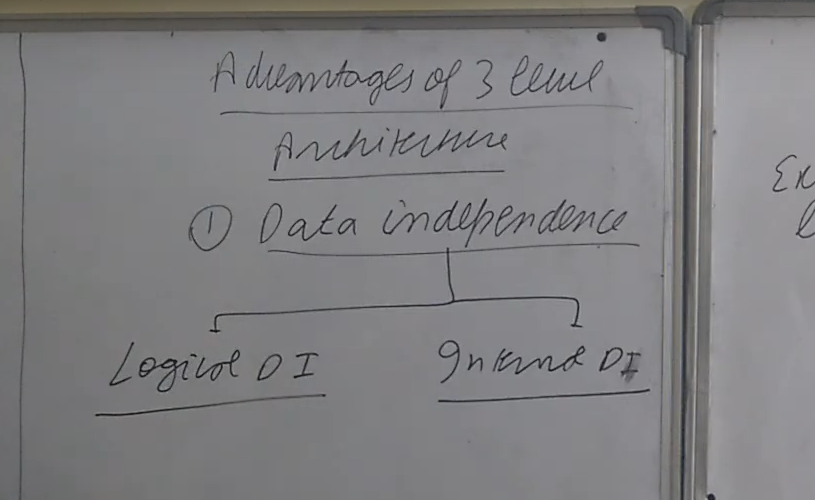 Advantages of 3 level
Architecture
① Data independence
Logical DI Internal DI
Ex